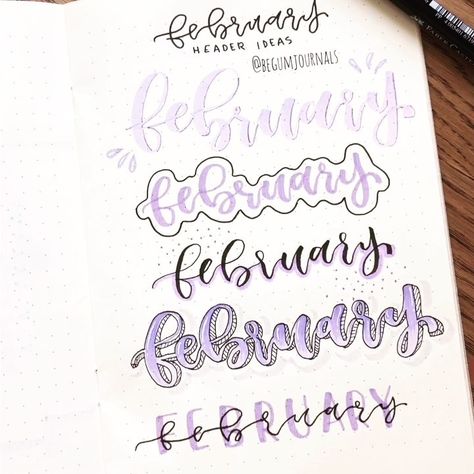 february
HEADER IDEAS
@BEGUMJOURNALS
february
february
february
february
FEBRUARY
february